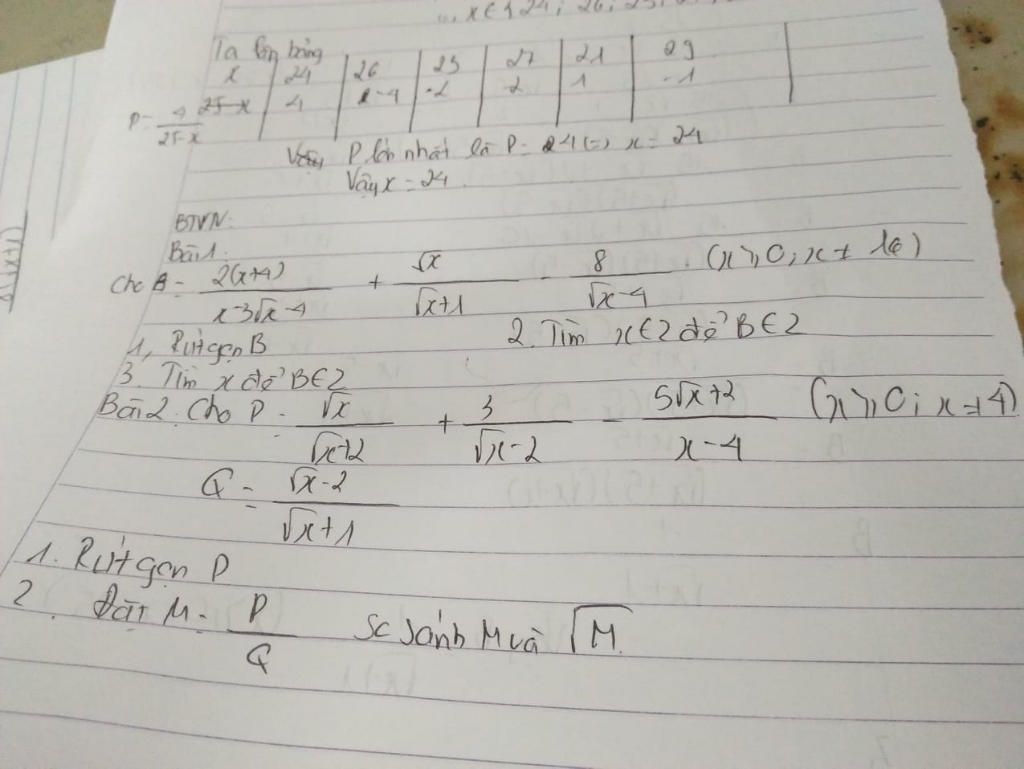 x ∈ {24; 26; 23;
Ta lập bảng
x | 24 | 26 | 23 | 27 | 21 | 29
P = 4/(25-x) | 4 | -4 | 2 | -2 | 1 | -1
Vậy P lớn nhất là P = 4 (=) x = 24
Vậy x = 24.
BTVN:
Bài 1:
Cho B = 2(x+4)/(x-3√x-4) + √x/(√x+1) - 8/(√x-4) (x ≥ 0, x ≠ 16)
1, Rút gọn B 2. Tìm x ∈ Z để B ∈ Z
3. Tìm x để B ∈ Z
Bài 2. Cho P = √x/(√x+2) + 3/(√x-2) - (5√x+2)/(x-4) (x ≥ 0; x ≠ 4)
Q = (√x-2)/(√x+1)
1. Rút gọn P
2. Đặt M = P/Q So sánh M và √M.